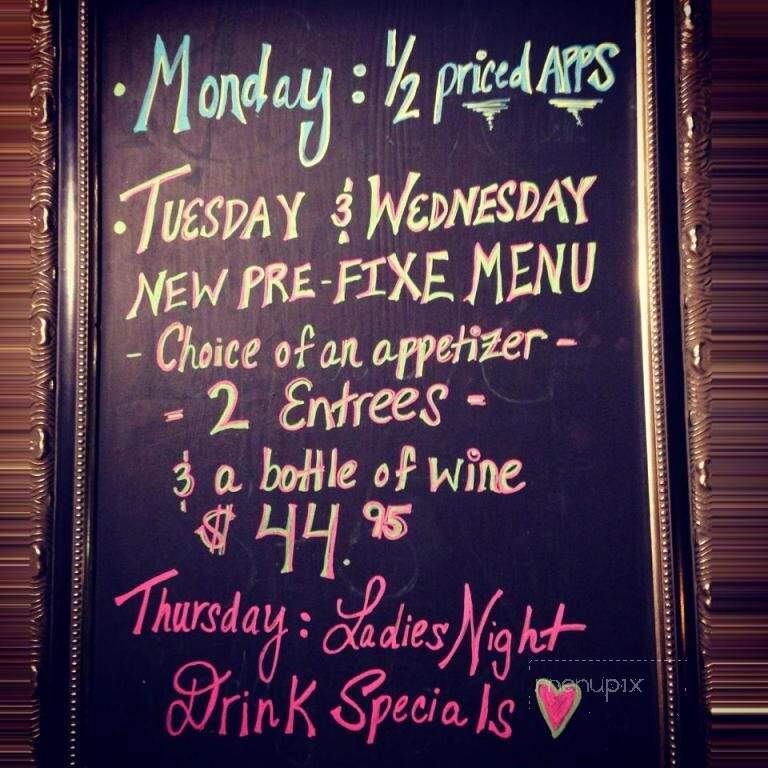 • Monday: 1/2 priced APPS
• TUESDAY & WEDNESDAY
NEW PRE-FIXE MENU
- Choice of an appetizer -
= 2 Entrees =
& a bottle of wine
$44.95
Thursday: Ladies Night
Drink Specials
menupix